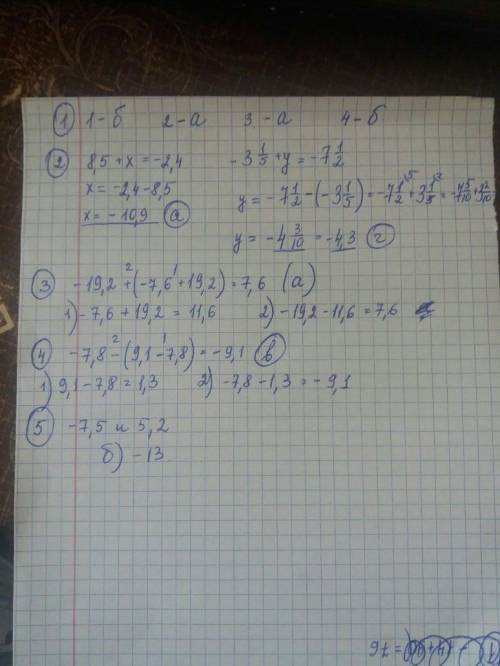 ① 1-б 2-а 3.-а 4-б
② 8,5 + x = -2,4
x = -2,4-8,5
x = -10,9 (а)
-3 1/5 + y = -7 1/2
y = -7 1/2 - (-3 1/5) = -7 1/2 + 3 1/5 = -7 5/10 + 3 2/10
y = -4 3/10 = -4,3 (г)
③ -19,2 + (-7,6 + 19,2) = 7,6 (а)
1) -7,6 + 19,2 = 11,6 2) -19,2-11,6 = 7,6
④ -7,8 - (9,1-7,8) = -9,1 (в)
1) 9,1-7,8 = 1,3 2) -7,8-1,3 = -9,1
⑤ -7,5 и 5,2
б) -13